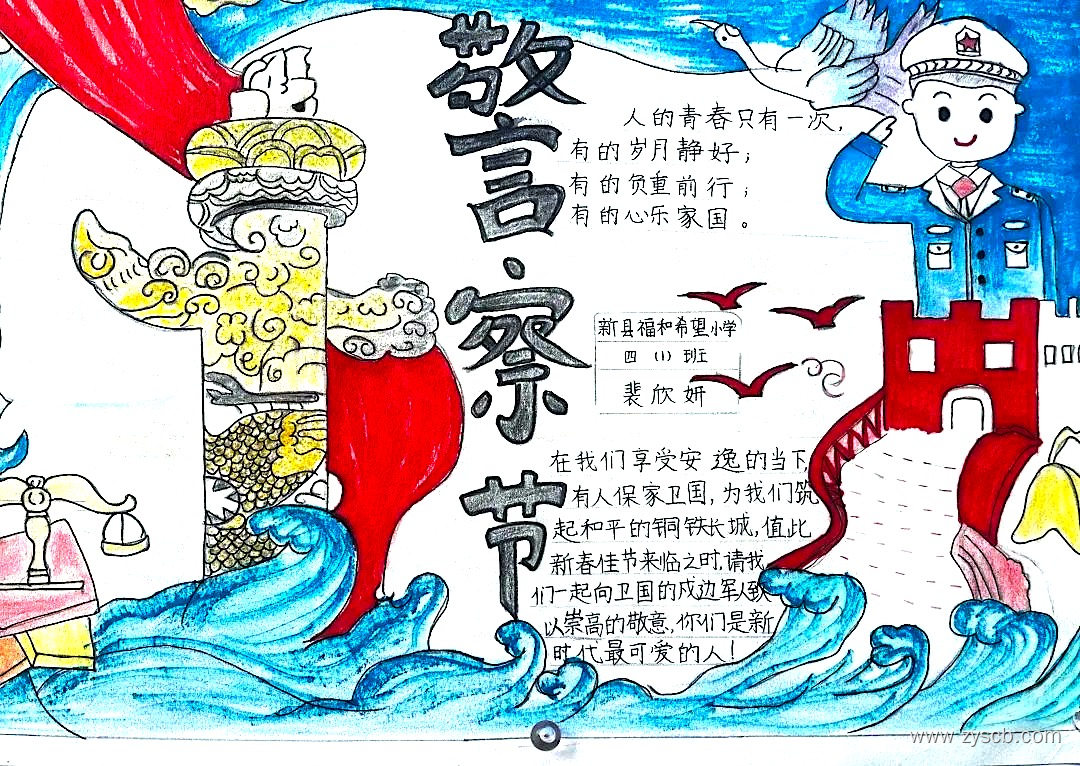 警言察节
人的青春只有一次，
有的岁月静好；
有的负重前行；
有的心乐家国。
新县福和希望小学
四（1）班
裴欣妍
在我们享受安逸的当下，
有人保家卫国，为我们筑
起和平的铜铁长城，值此
新春佳节来临之时，请我
们一起向卫国的戍边军人致
以崇高的敬意，你们是新
时代最可爱的人！
www.zyscb.com